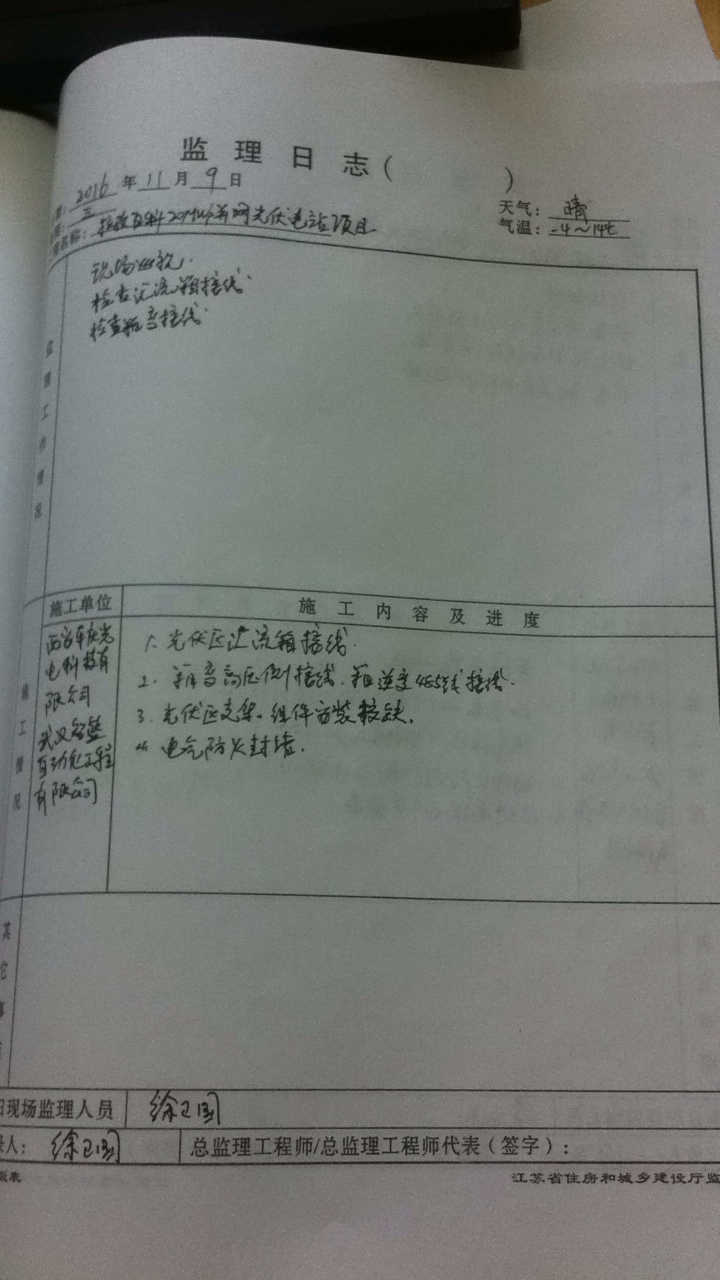 监理日志(        )
期: 2016 年 11 月 9 日
天气: 晴
期: 三
气温: -4～14℃
名称: 20MW并网光伏电站项目
监理工作情况
现场巡视.
检查汇流箱接线.
检查箱变接线.
施工单位
施工内容及进度
施工情况
西安 光
电科技有
限公司
武汉
自动化工程
有限公司
1. 光伏区汇流箱接线.
2. 箱变高压侧接线. 箱逆变485线接线.
3. 光伏区支架. 组件安装 .
4. 电气防火封堵.
其它事
日现场监理人员 徐卫国
录人: 徐卫国
总监理工程师/总监理工程师代表(签字):
江苏省住房和城乡建设厅监